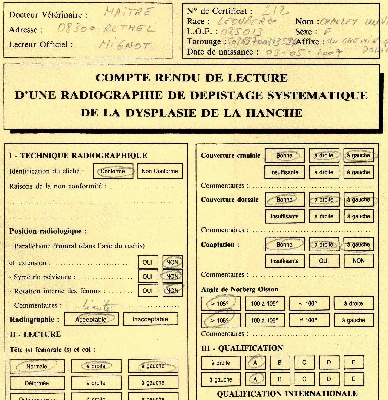 Docteur Vétérinaire : MAITRE
Adresse : 08300 RETHEL
Lecteur Officiel : MIGNOT
N° de Certificat : 212
Race : Nom :
L.O.F. : 025013 Sexe : F
Tatouage : Affixe :
Date de naissance : 03-05-2007
COMPTE RENDU DE LECTURE
D'UNE RADIOGRAPHIE DE DEPISTAGE SYSTEMATIQUE
DE LA DYSPLASIE DE LA HANCHE
I - TECHNIQUE RADIOGRAPHIQUE
Identification du cliché : Conforme Non Conforme
Raisons de la non conformité :
Position radiologique :
Parallélisme fémoral (dans l'axe du rachis)
et extension : OUI NON
- Symétrie pelvienne : OUI NON
- Rotation interne des fémurs : OUI NON
Commentaires : Limite
Radiographie : Acceptable Inacceptable
II - LECTURE
Tête (s) fémorale (s) et col :
Normale à droite à gauche
Déformée à droite à gauche
Couverture craniale Bonne à droite à gauche
Insuffisante à droite à gauche
Commentaires :
Couverture dorsale Bonne à droite à gauche
Insuffisante à droite à gauche
Commentaires :
Coaptation : Bonne à droite à gauche
Insuffisante OUI NON
Commentaires :
Angle de Norberg Olsson
> 105° 100 à 105° < 100° à droite
> 105° 100 à 105° < 100° à gauche
III - QUALIFICATION
à droite A B C D E
à gauche A B C D E
QUALIFICATION INTERNATIONALE